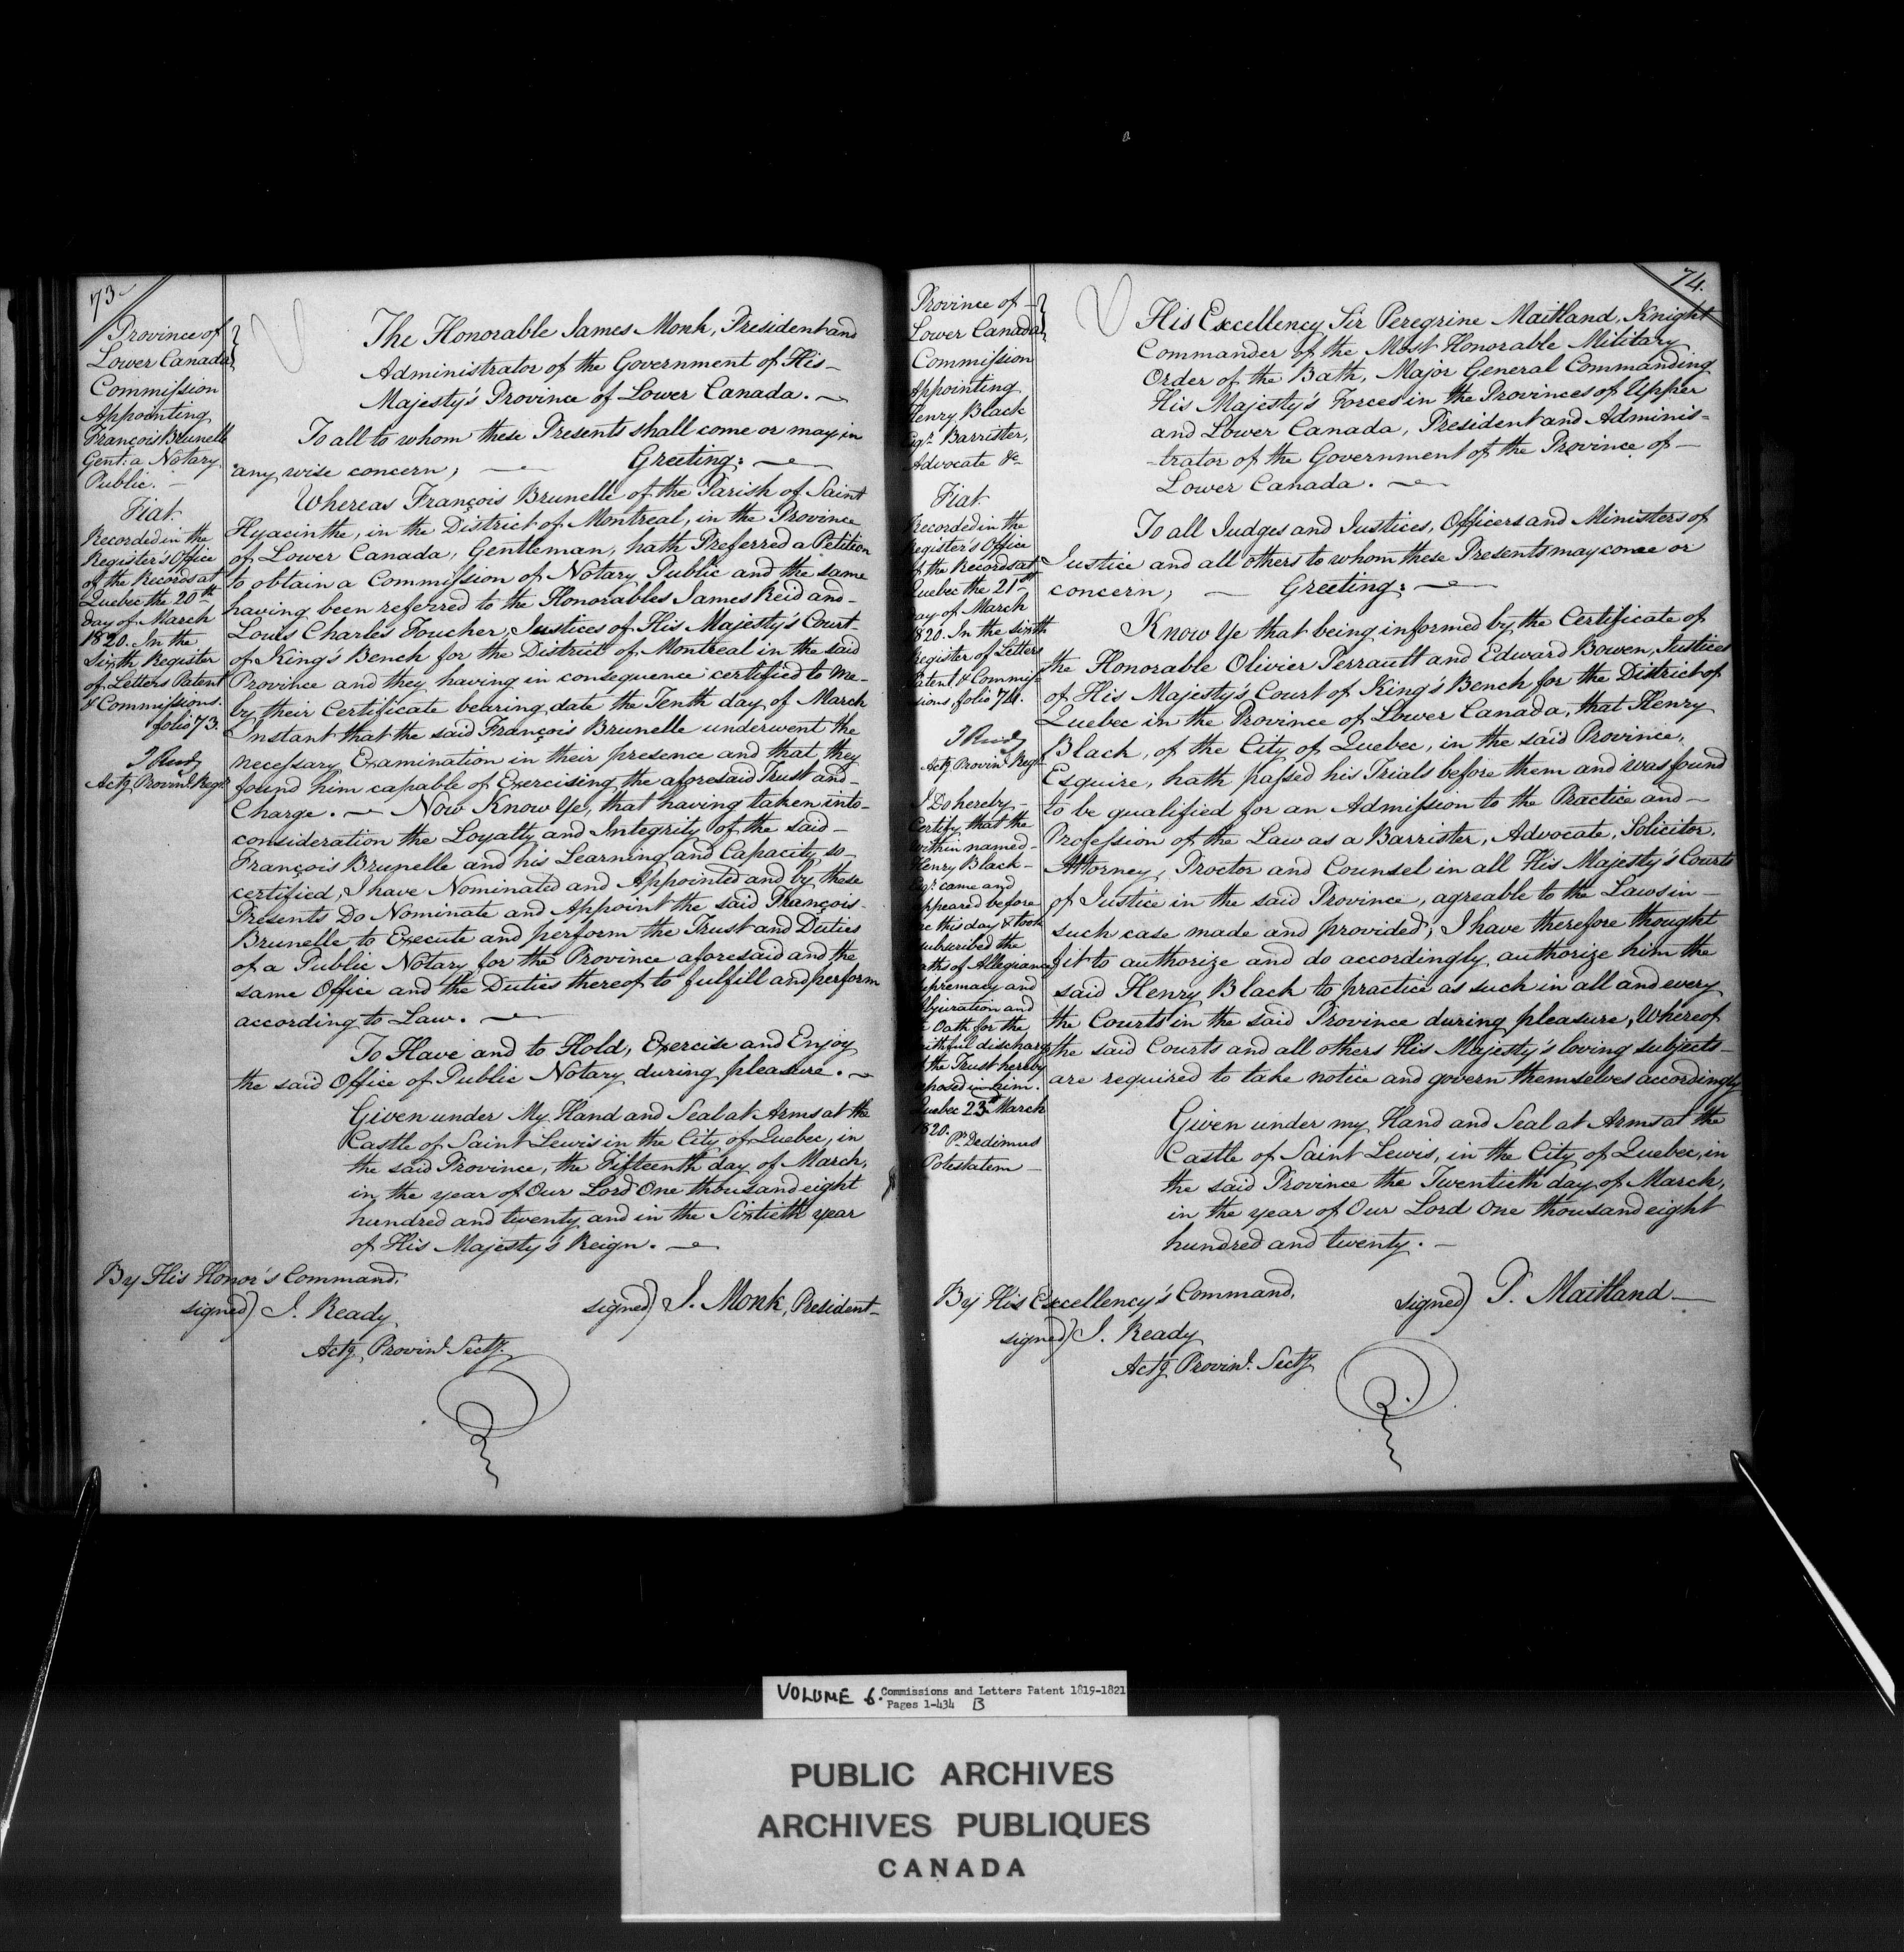 73
Province of
Lower Canada
Commission
Appointing
François Brunelle
Gent: a Notary
Public. —
Fiat.
Recorded in the
Register's Office
of the Records at
Quebec the 20th
day of March
1820. In the
Sixth Register
of Letters Patent
& Commissions.
folio 73.
J Ready
Actg Provinl Regr
The Honorable James Monk, President and
Administrator of the Government of His —
Majesty's Province of Lower Canada. —
To all to whom these Presents shall come or may in
any wise concern; — Greeting: —
Whereas François Brunelle of the Parish of Saint
Hyacinthe, in the District of Montreal, in the Province
of Lower Canada, Gentleman, hath Preferred a Petition
to obtain a Commission of Notary Public and the same
having been referred to the Honorables James Reid and —
Louis Charles Foucher, Justices of His Majesty's Court
of King's Bench for the District of Montreal in the said
Province and they having in consequence certified to me —
by their Certificate bearing date the Tenth day of March
Instant that the said François Brunelle underwent the
necessary Examination in their presence and that they
found him capable of Exercising the aforesaid Trust and —
Charge. — Now Know Ye, that having taken into —
consideration the Loyalty and Integrity of the said —
François Brunelle and his Learning and Capacity so
certified, I have Nominated and Appointed and by these
Presents Do Nominate and Appoint the said François
Brunelle to Execute and perform the Trust and Duties
of a Public Notary for the Province aforesaid and the
same Office and the Duties thereof to fulfill and perform
according to Law. —
To Have and to Hold, Exercise and Enjoy
the said Office of Public Notary during pleasure. —
Given under My Hand and Seal at Arms at the
Castle of Saint Lewis in the City of Quebec, in
the said Province, the Fifteenth day of March,
in the year of Our Lord One thousand eight
hundred and twenty and in the Sixtieth year
of His Majesty's Reign. —
By His Honor's Command,
signed) J. Ready
Actg Provinl. Secty.
signed) J. Monk, President —
74.
Province of —
Lower Canada
Commission
Appointing
Henry Black
Esqr. Barrister,
Advocate &c
Fiat
Recorded in the
Register's Office
of the Records at
Quebec the 21st
day of March
1820. In the sixth
Register of Letters
Patent & Commis-
sions folio 74.
J Ready
Actg Provinl Regr
I Do hereby —
Certify that the
within named —
Henry Black —
Esqr. came and
appeared before
me this day & took
subscribed the
oaths of Allegiance
Supremacy and
Abjuration and
the Oath for the
faithful discharge
of the Trust hereby
reposed in him.
Quebec 23d March
1820.
Pr. Dedimus
Potestatem —
His Excellency Sir Peregrine Maitland, Knight
Commander of the Most Honorable Military
Order of the Bath, Major General Commanding
His Majesty's Forces in the Provinces of Upper
and Lower Canada, President and Adminis-
-trator of the Government of the Province of —
Lower Canada. —
To all Judges and Justices, Officers and Ministers of
Justice and all others to whom these Presents may come or
concern; — Greeting: —
Know Ye that being informed by the Certificate of
the Honorable Olivier Perrault and Edward Bowen, Justices
of His Majesty's Court of King's Bench for the District of
Quebec in the Province of Lower Canada, that Henry
Black, of the City of Quebec, in the said Province,
Esquire, hath passed his Trials before them and was found
to be qualified for an Admission to the Practice and —
Profession of the Law as a Barrister, Advocate, Solicitor,
Attorney, Proctor and Counsel in all His Majesty's Courts
of Justice in the said Province, agreable to the Laws in —
such case made and provided; I have therefore thought
fit to authorize and do accordingly authorize him the
said Henry Black to practice as such in all and every
the Courts in the said Province during pleasure, Whereof
the said Courts and all others His Majesty's loving subjects —
are required to take notice and govern themselves accordingly
Given under my Hand and Seal at Arms at the
Castle of Saint Lewis, in the City of Quebec, in
the said Province the Twentieth day of March,
in the year of Our Lord One thousand eight
hundred and twenty. —
By His Excellency's Command,
signed) J. Ready
Actg Provinl. Secty
signed) P. Maitland —
VOLUME 6. Commissions and Letters Patent 1819-1821
Pages 1-434 B
PUBLIC ARCHIVES
ARCHIVES PUBLIQUES
CANADA